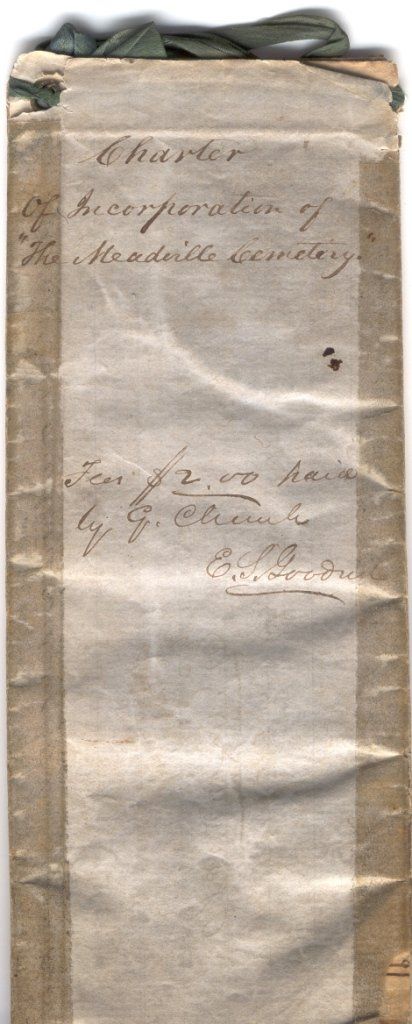 Charter
Of Incorporation of
"The Meadville Cemetery."
Fees $2.00 paid
by G. Church
E. S. Goodrich